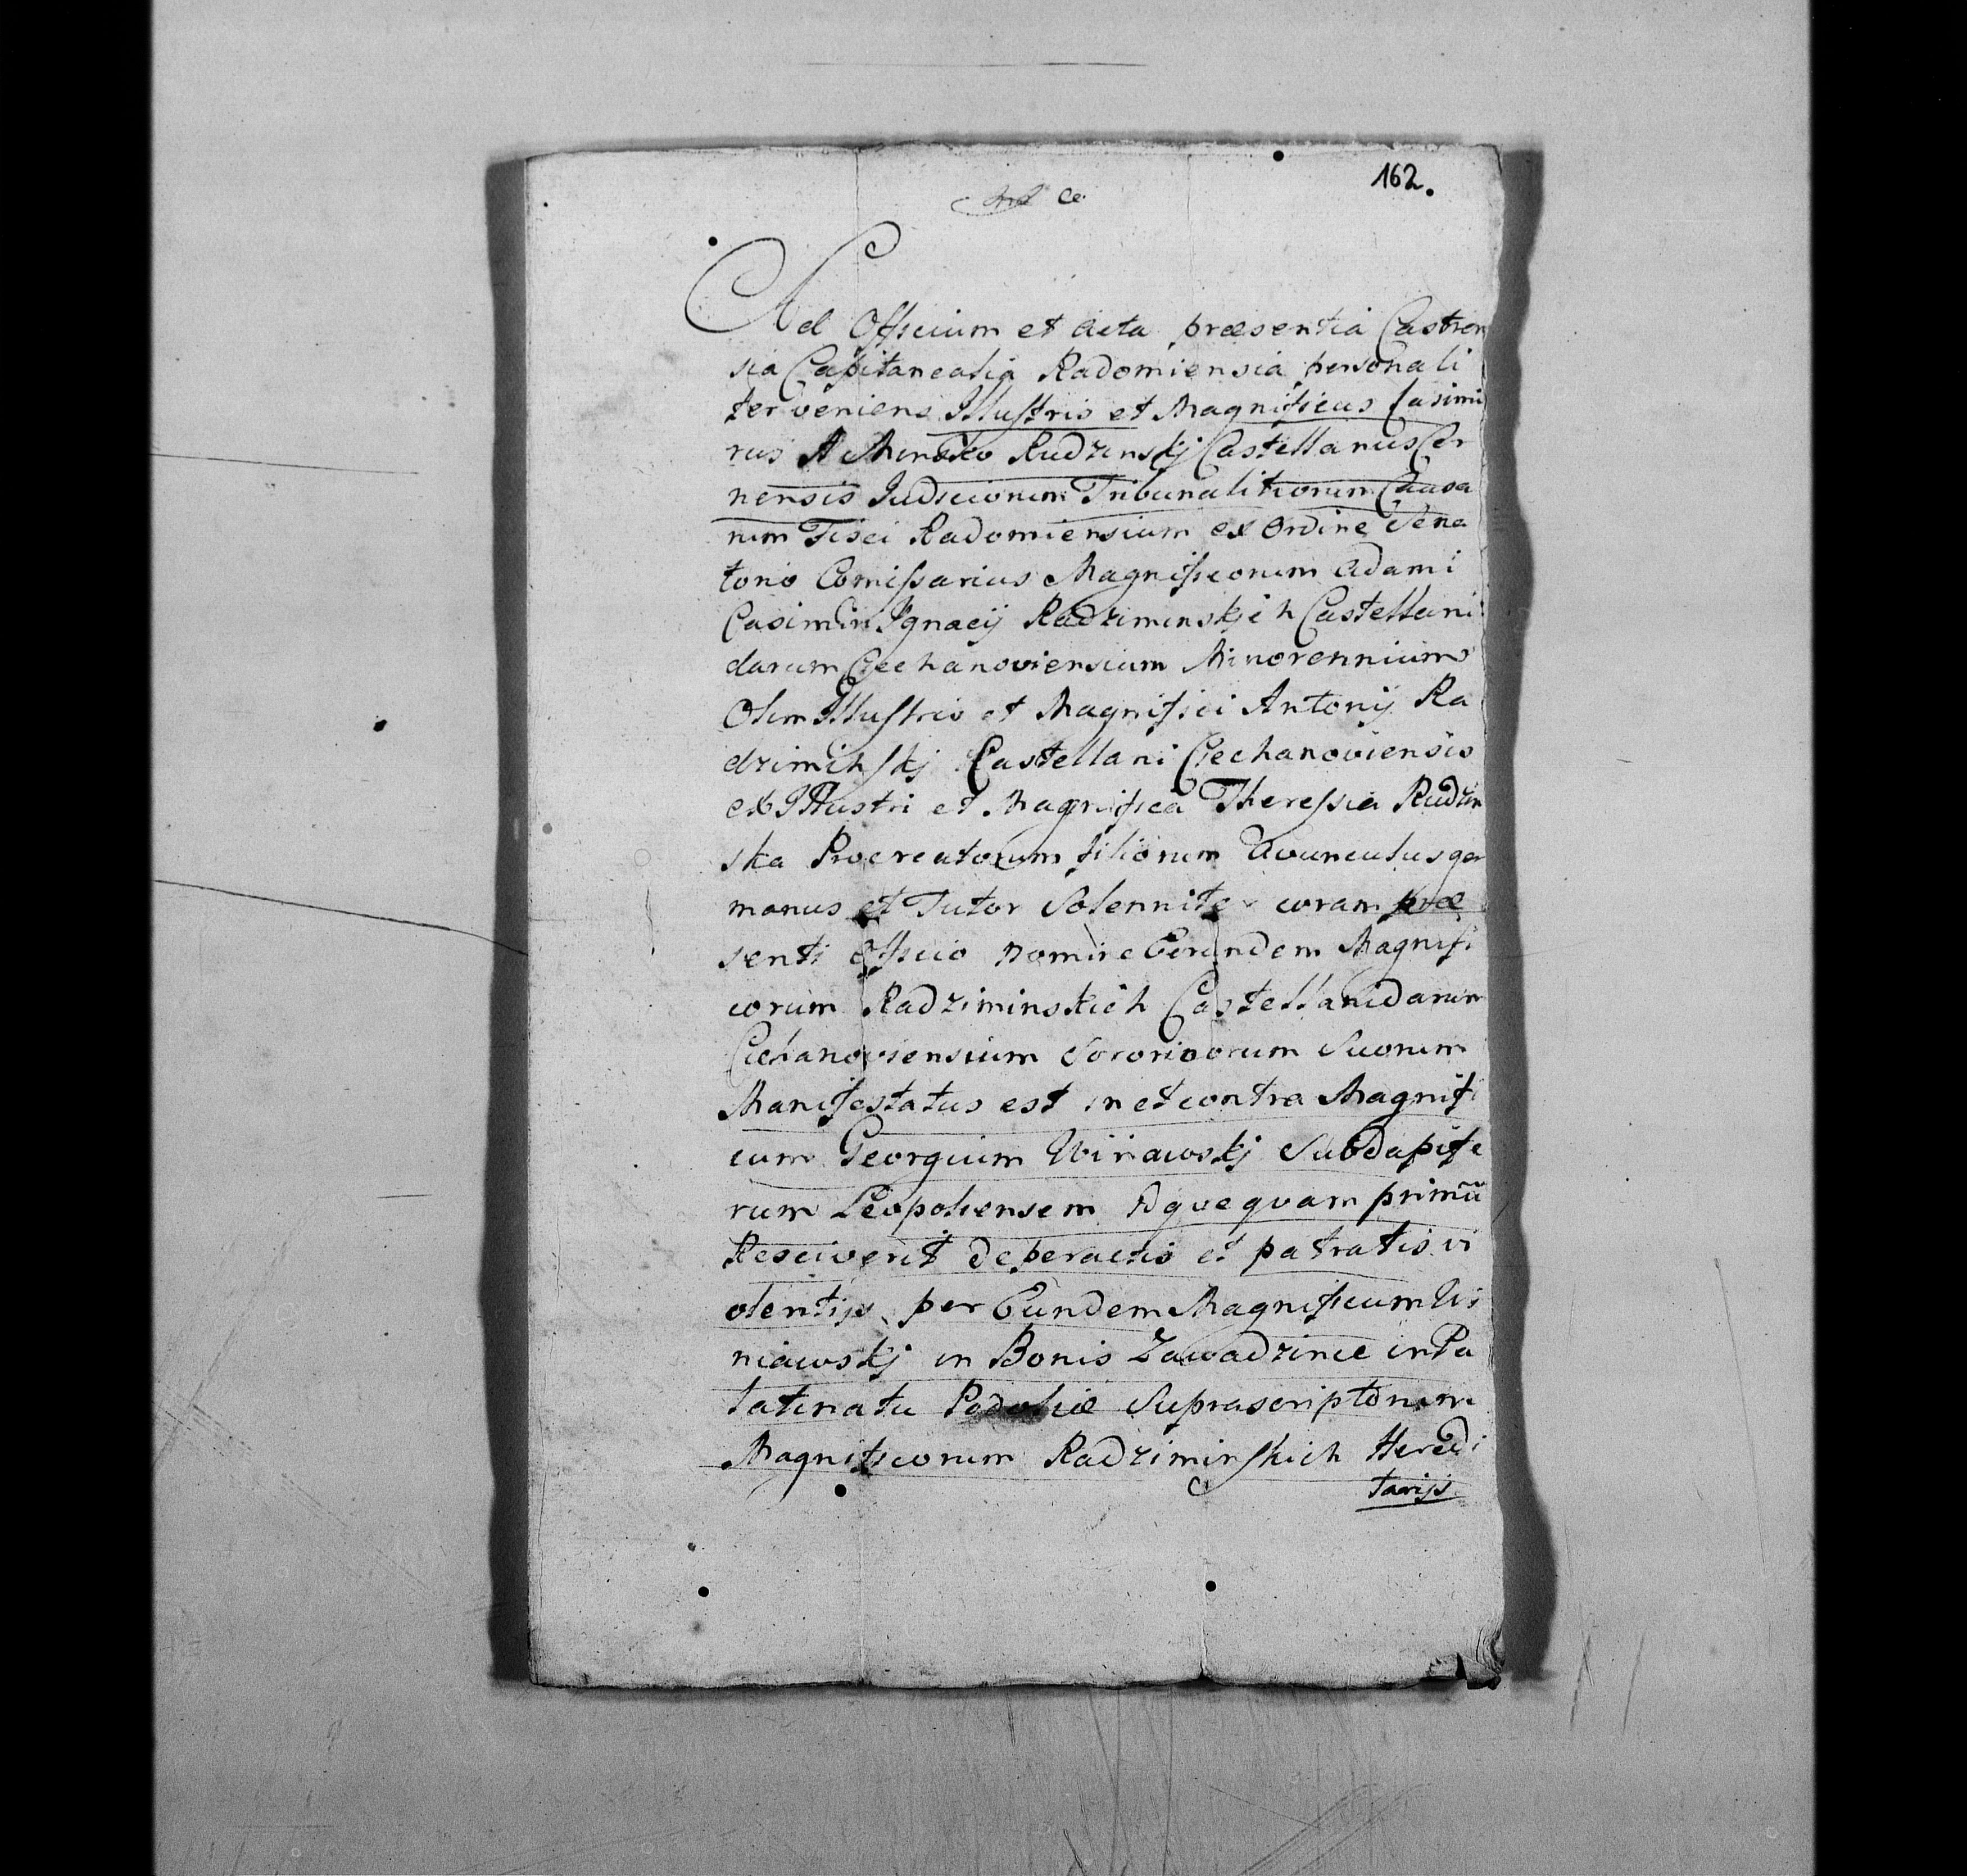 162.
Ad Officium et Acta præsentia Castren
sia Capitanealia Radomiensia personali
ter veniens Illustris et Magnificus Casimi
rus A Minsko Rudzinskj Castellanus Cer
nensis Judiciorum Tribunalitiorum Causa
rum Fisci Radomiensium ex Ordine Sena
torio Comissarius Magnificorum Adami
Casimiri Ignacij Radziminskich Castellani
darum Ciechanoviensium Minorennium
Olim Illustris et Magnifici Antonij Ra
dziminskj Castellani Ciechanoviensis
ex Illustri et Magnifica Theressia Rudzin
ska Procreatorum filiorum Avunculus ger
manus et Tutor Solenniter coram præ
senti Officio nomine Eorundem Magnifi
corum Radziminskich Castellanidarum
Ciechanoviensium Sororinorum Suorum
Manifestatus est in et contra Magnifi
cum Georgium Winiawskj Subdapife
rum Leopoliensem Idque quam primũ
Resciverit de peractis et patratis vi
olentijs per Eundem Magnificum Wi
niawskj in Bonis Zawadzince in Pa
latinatu Podoliæ Suprascriptorum
Magnificorum Radziminskich Heredi
tarijs